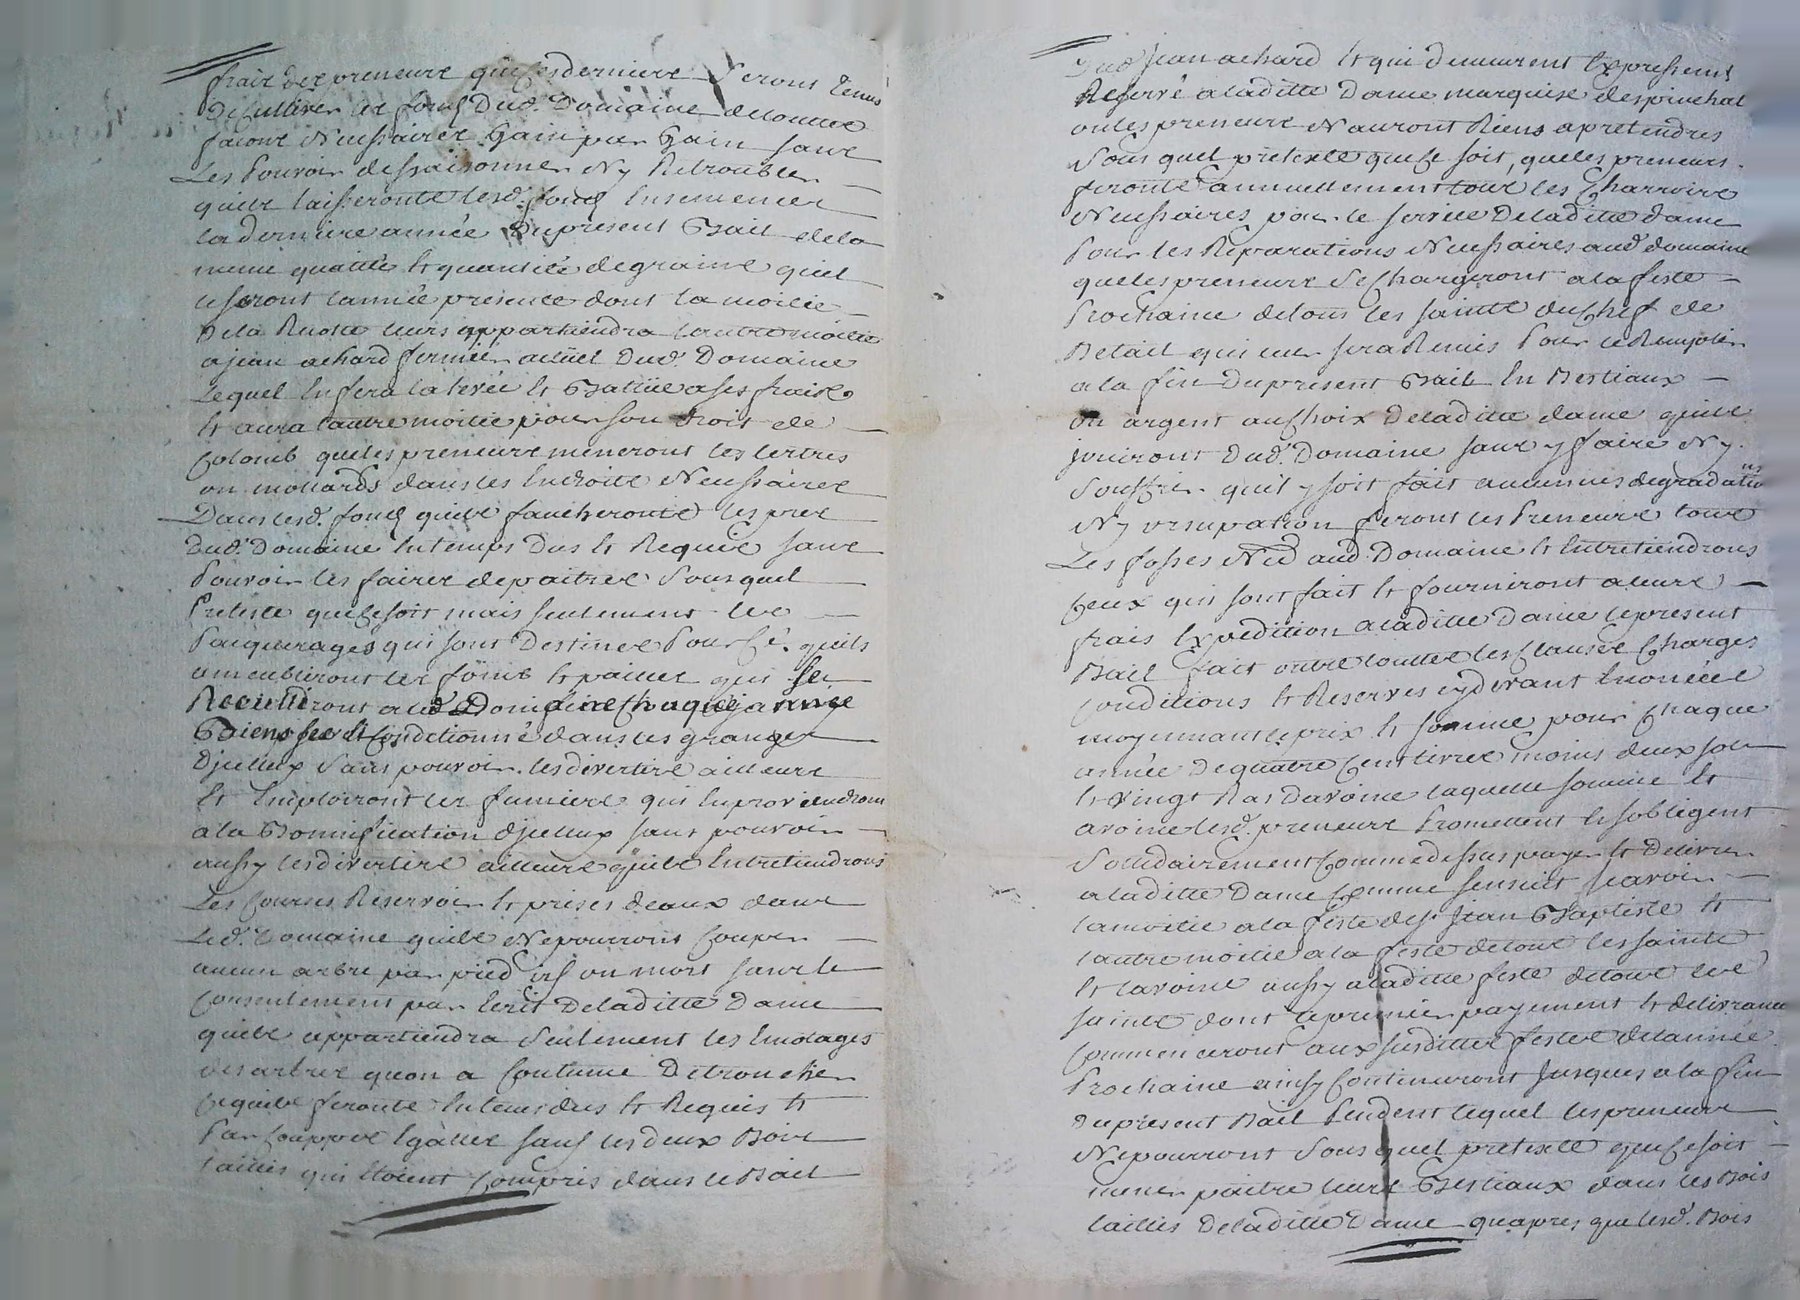 frais des preneurs que ces derniers seront tenus
de cultiver les fonds dud. Domaine de toutes
facons Necessaires Gain par Gain sans
Les Pouvoir dessaisonner Ny Retroubler
quils laisseronts lesd. fonds Ensemencer
la derniere année du present Bail de la
meme qualité et quantité de grains quil
le seront lannée presente dont la moitié
De la Recolte leurs appartiendra lautre moitié
a jean achard fermier actüel Dud. Domaine
Lequel En fera la levée et Battüe a ses frais
et aura lautre moitié pour son droit de
Colomb que les preneurs meneront les tertres
ou mollards dans les Endroits Necessaires
Dans lesd. fonds quils faucheronts les prés
dud. Domaine En temps Dus et Requis sans
Pouvoir les faires depaitres sous quel
Pretexte que Ce soit mais seulement les
Paquerages qui sont Destinés Pour Ce. quils
ameubliront les foins et pailles qui se
Recueilliront aud. Domaine Chaque année
Biens sec et Conditionné dans les granges
Djcelluy sans pouvoir les divertirs ailleurs
Et Emploiront les fumiers qui En proviendrons
a la Bonnification Djcelluy sans pouvoir
aussy les divertirs ailleurs quils Entretiendrons
Les Courses Reservoir et prises deaux dans
Led. Domaine quils Ne pourront Couper
aucun arbre par pied vif ou mort sans le
Consentement par Ecrit De laditte Dame
quils appartiendra seulement les Emolages
des arbres quon a Coutume De troncher
Ce quils feronts En tems dus et Requis et
Par Couppes Egalles sauf les deux Bois
taillis qui Etoient Compris dans le Bail
Dud. jean achard et qui demeurent Expressement
Reservé a laditte Dame marquise despinchal
ou les preneurs Nauront Riens a pretendres
sous quel pretexte que Ce soit, que les preneurs
feronts annuellement tous les Charroirs
Necessaires pour le service De laditte dame
Pour les Reparations Necessaires aud. domaine
que les preneurs se Chargeront a la feste
Prochaine de tous les saints du Chef de
Betail qui leur sera Remis Pour le Remplir
a la fin du present Bail En Bestiaux
ou argent au Choix De laditte dame quils
jouiront Dud. Domaine sans y faire Ny
souffrir quil y soit fait aucunnes degradations
Ny usurpation feront les Preneurs tous
Les fosses Nd aud. Domaine et Entretiendrons
Ceux qui sont fait et fourniront a leurs
frais Expedition a laditte Dame le present
Bail fait outre touttes les Clauses Charges
Conditions et Reserves cy devant Enoncées
moyennant le prix et somme pour Chaque
année De quatre Cent livres moins deux sols
et vingt Ras Davoine laquelle somme et
avoine lesd. preneurs Promettent et sobligent
solidairement Comme dessus payer et Delivrer
a laditte Dame Comme sensuit scavoir
la moitié a la feste de st jean Baptiste et
lautre moitié a la feste de tous les saints
et lavoine aussy a laditte feste de tous les
saints dont le premier payement et delivrance
Commenceront aux susdittes festes de lannée
Prochaine ainsy Continueront jusques a la fin
du present Bail Pendent lequel les preneurs
Ne pourront sous quel pretexte que Ce soit
mener paitre leurs Bestiaux dans les Bois
taillis De laditte Dame quapres que lesd. Bois